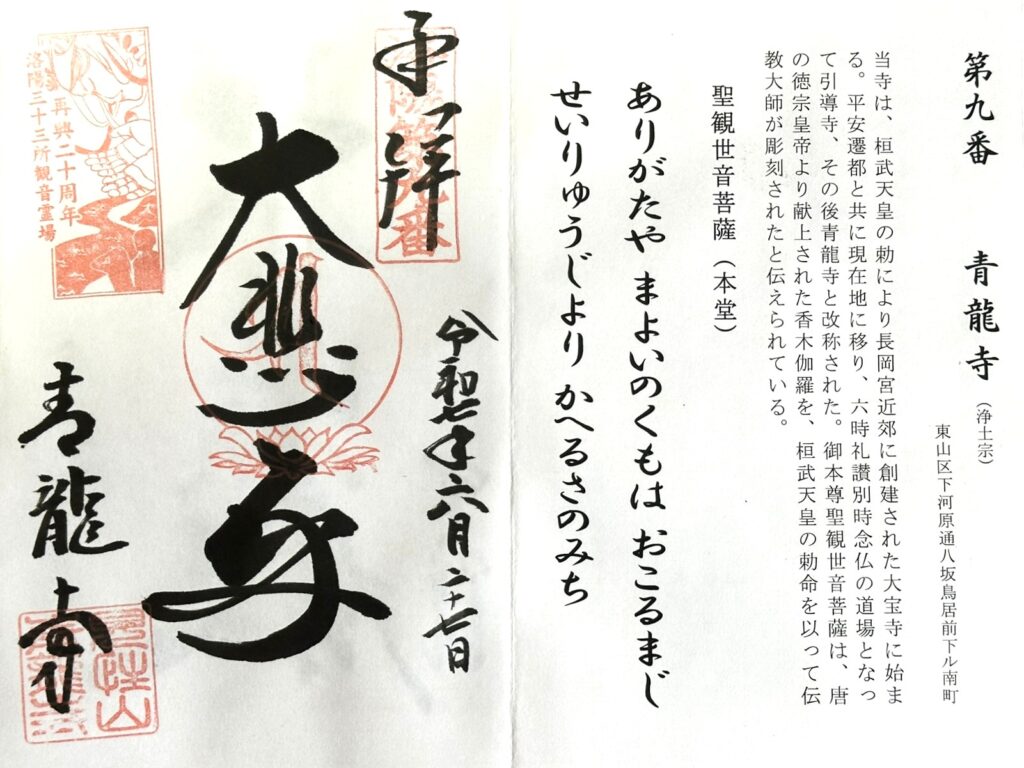 第九番　青龍寺（浄土宗）
東山区下河原通八坂鳥居前下ル南町
当寺は、桓武天皇の勅により長岡宮近郊に創建された大宝寺に始ま
る。平安遷都と共に現在地に移り、六時礼讃別時念仏の道場となっ
て引導寺、その後青龍寺と改称された。御本尊聖観世音菩薩は、唐
の徳宗皇帝より献上された香木伽羅を、桓武天皇の勅命を以って伝
教大師が彫刻されたと伝えられている。
聖観世音菩薩（本堂）
ありがたや まよいのくもは おこるまじ
せいりゅうじより かへるさのみち
奉拝
令和七年六月二十七日
大悲
青龍寺
再興二十周年
洛陽三十三所観音霊場